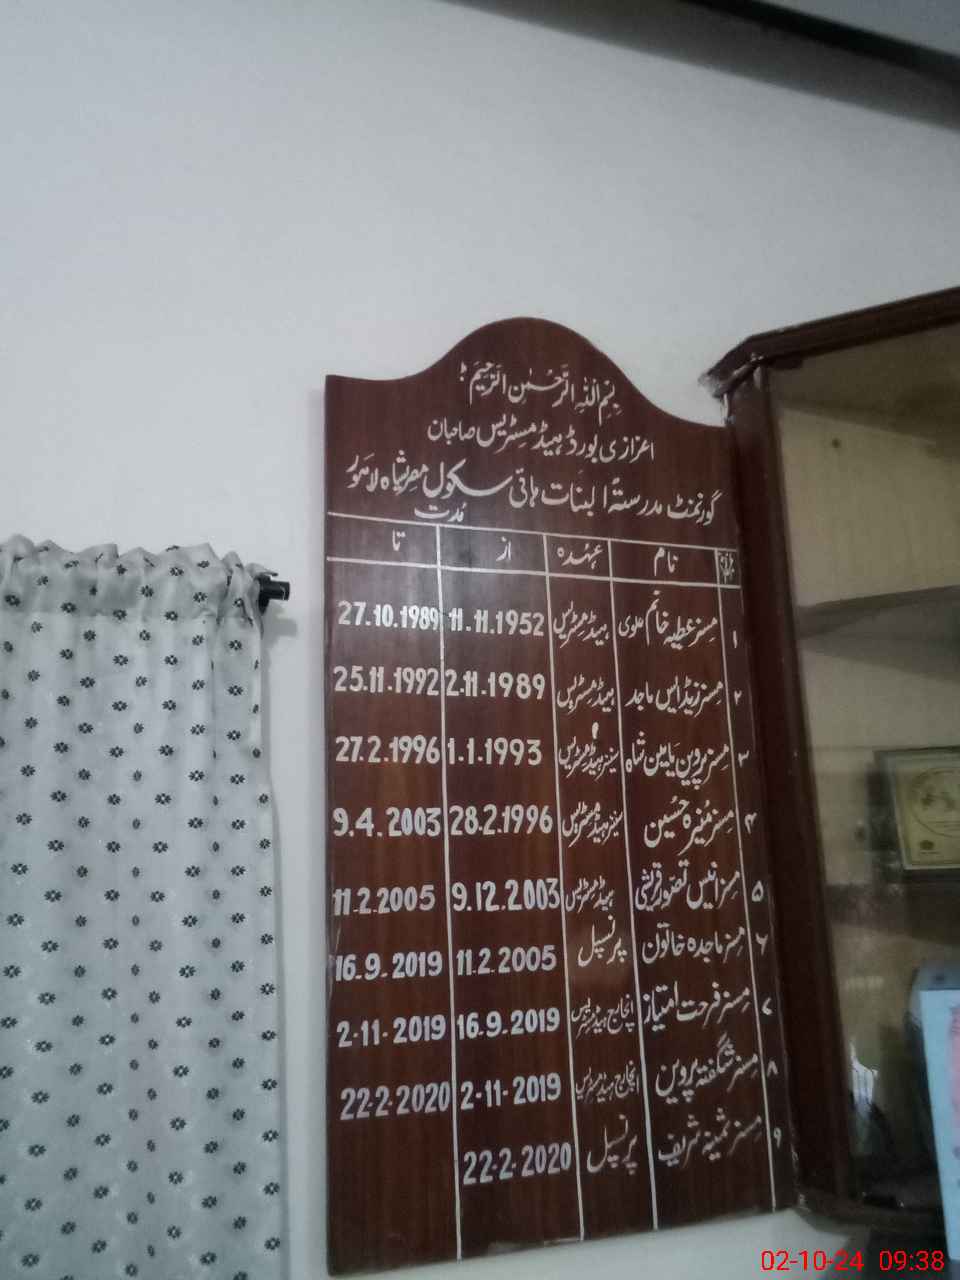 بِسْمِ اللهِ الرَّحْمٰنِ الرَّحِيْمِ
اعزازی بورڈ ہیڈ مسٹریس صاحبان
گورنمنٹ مدرستہ البنات ہائی سکول مصری شاہ لاہور
مُدت
نام عہدہ از تا
۱ مسز عطیہ خانم علوی ہیڈ مسٹریس 11.11.1952 27.10.1989
۲ مسز زیڈ ایس ماجد ہیڈ مسٹریس 2.11.1989 25.11.1992
۳ مسز پروین یامین شاہ سینئر ہیڈ مسٹریس 1.1.1993 27.2.1996
۴ مسز مُنیرہ حُسین سینئر ہیڈ مسٹریس 28.2.1996 9.4.2003
۵ مسز انیس تصور قریشی ہیڈ مسٹریس 9.12.2003 11.2.2005
۶ مسز ماجدہ خاتون پرنسپل 11.2.2005 16.9.2019
۷ مسز فرحت امتیاز انچارج ہیڈ مسٹریس 16.9.2019 2-11-2019
۸ مسز شگفتہ پروین انچارج ہیڈ مسٹریس 2-11-2019 22-2-2020
۹ مسز ثمینہ شریف پرنسپل 22-2-2020
02-10-24 09:38